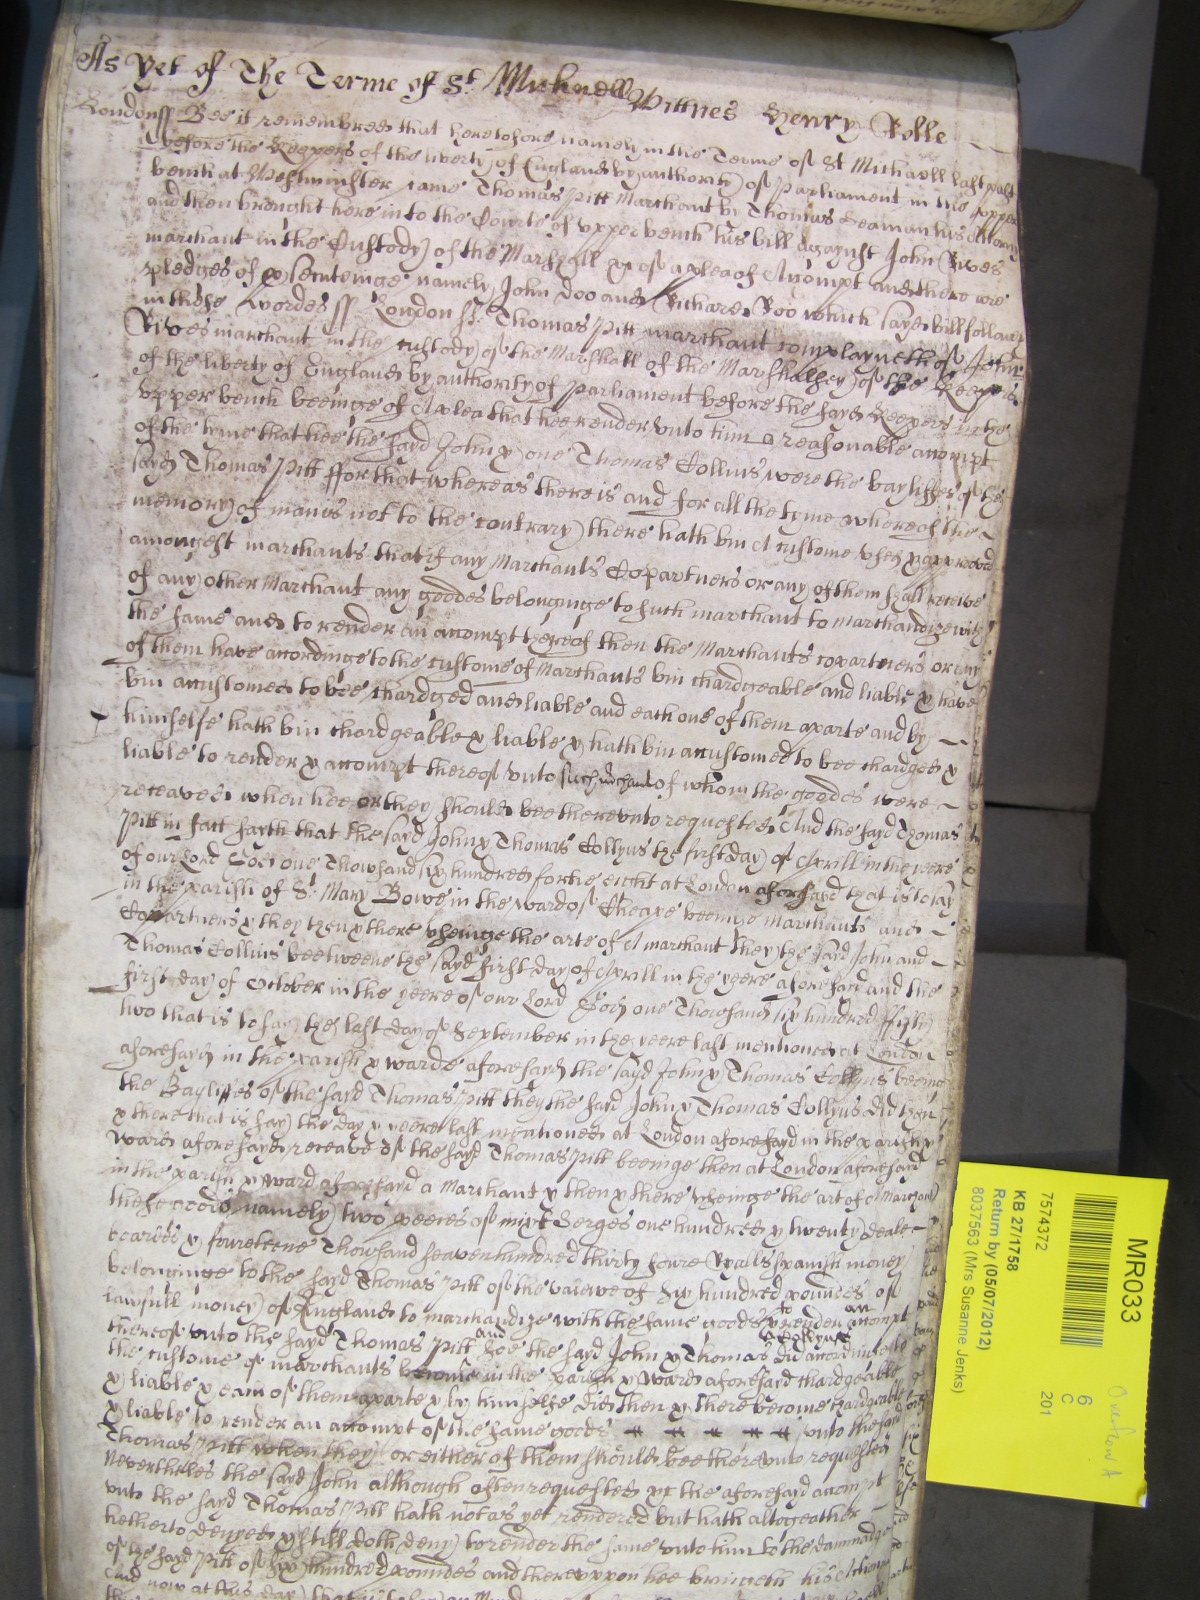 As yet of The Terme of St. Michaell Wittnes Henry Rolle
London ss Bee it remembred that heretofore namely in the Terme of St Michaell last past
before the Keepers of the liberty of England by authority of Parliament in the upper
bench at Westminster came Thomas Pitt Marchant by Thomas Leaman his Attorny
and then brought here into the Courte of upper bench his bill against John Rives
marchant in the Custody of the Marshall &c of a plea of Accompt and there are
pledges of prosecuteinge namely John Doo and Richard Roo which sayd bill followes
in these wordes ss London ss Thomas Pitt marchant complayneth of John
Rives marchant in the custody of the Marshall of the Marshalsey of the Keepers
of the liberty of England by authority of Parliament before the sayd Keepers in the
upper bench beeinge of A plea that hee render unto him a reasonable accompt
of the tyme that hee the sayd John & one Thomas Collins were the bayliffes of the
sayd Thomas Pitt ffor that whereas there is and for all the tyme whereof the
memory of man is not to the contrary there hath bin A custome used & approved
amongest marchants that if any Marchants Copartners or any of them shall receive
of any other Marchant any goodes belonginge to such marchant to marchandize with
the same and to render an accompt thereof then the Marchants copartners or any
of them have accordinge to the custome of Marchants bin chardgeable and liable & have
bin accustomed to bee chardged and liable and each one of them aparte and by
himselfe hath bin chardgeable & liable & hath bin accustomed to bee chardged &
liable to render & accompt thereof unto such mchant of whom the goodes were
receaved when hee or they should bee thereunto requested And the sayd Thomas
Pitt in fact sayth that the sayd John & Thomas Collyns the first day of Aprill in the yeere
of our Lord God one Thowsand six hundred fortie eight at London aforesayd that is to say
in the parish of St. Mary Bowe in the ward of Cheape beeinge Marchants and
Copartners & they then & there useinge the arte of A marchant they the sayd John and
Thomas Collins beetweene the sayd first day of Aprill in the yeere aforesayd and the
first day of October in the yeere of our Lord God one Thowsand six hundred ffifty
two that is to say the last day of September in the yeere last mentioned at London
aforesayd in the parish & warde aforesayd the sayd John & Thomas Collyns beeing
the Bayliffes of the sayd Thomas Pitt they the said John & Thomas Collyns did then
& there that is say the day & yeere last mentioned at London aforesayd in the parish &
ward aforesayd receave of the sayd Thomas Pitt beeinge then at London aforesayd
in the parish & ward aforesayd a Marchant & then & there useinge the art of A Marchant
these goods namely two peeces of mixt Serges one hundred & twenty deale
boards & fourteene Thowsand seaven hundred thirty foure Ryalls spanish money
belonginge to the sayd Thomas Pitt of the valewe of six hundred poundes of
lawfull money of England to marchandize with the same goods & to render an accompt
thereof unto the sayd Thomas Pitt and soe the sayd John & Thomas Collyns did accordinge to
the custome of marchants become in the parish & ward aforesayd chardgeable
& liable & each of them aparte & by himselfe did then & there become chardgeable
& liable to render an accompt of the same goods # # # # # unto the said
Thomas Pitt when they or either of them should bee thereunto requested
Nevertheles the sayd John although often requested yet the aforesayd accompt
unto the sayd Thomas Pitt hath not as yet rendered but hath altogeather
hetherto denyed & still doth deny to render the same unto him to the dammadge
of the sayd Pitt of six hundred poundes and thereuppon hee bringeth his Action
And now at this day that is to say on
MR033
6
C
201
7574372
KB 27/1758
Return by (05/07/2012)
8037563 (Mrs Susanne Jenks)